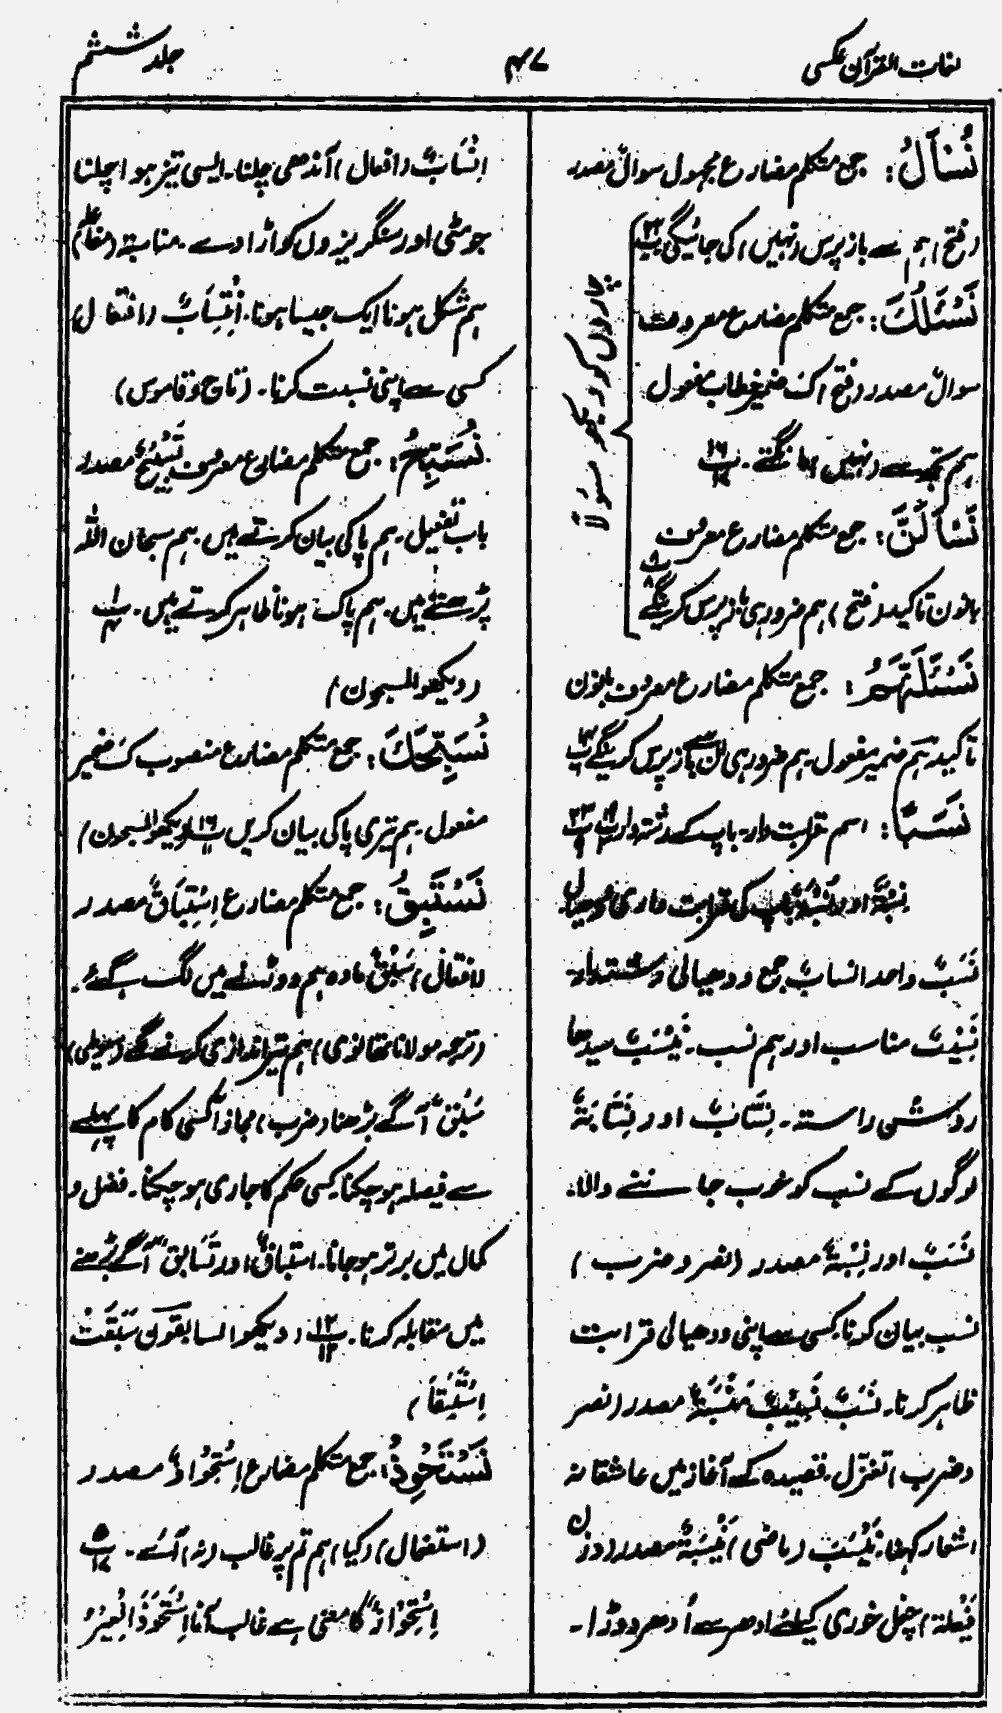 لغات القرآن عکسی
۴۷
جلد ششم
نُسْأَلُ: جمع متکلم مضارع مجہول سوالٌ مصدر
(فتح) ہم سے باز پرس (نہیں) کی جائیگی ۲۲
نَسْئَلُكَ: جمع متکلم مضارع معروف
سوالٌ مصدر (فتح) کَ ضمیر خطاب مفعول
ہم تجھ سے (نہیں) مانگتے ۔ ۱۶
نَسْأَلَنَّ: جمع متکلم مضارع معروف
بانون تاکید (فتح) ہم ضرور ہی باز پرس کرینگے ۸
چاروں کو دیکھو سئولا
نَسْئَلَنَّهُمْ: جمع متکلم مضارع معروف بانون
تاکید ہُم ضمیر مفعول ۔ ہم ضرور ہی ان سے باز پرس کرینگے ۱۴
نَسَبًا: اسم قرابت دار۔ باپ کے رشتہ دار
نِسْبَةٌ اور نُسْبَةٌ باپ کی قرابت داری
نَسَبٌ واحد انسابٌ جمع ددھیالی رشتہ دار۔
نَسِیْبٌ مناسب اور ہم نسب ۔ نَیْسَبٌ سیدھا
روشن راستہ ۔ نِسَّابٌ اور نَسَّابَةٌ
لوگوں کے نسب کو خوب جاننے والا۔
نَسَبٌ اور نِسْبَةٌ مصدر (نصر و ضرب)
نسب بیان کرنا کسی سے اپنی ددھیالی قرابت
ظاہر کرنا۔ نَسَبٌ نَسِیْبٌ مَنْسَبَةٌ مصدر (نصر
و ضرب) تغزّل ۔ قصیدہ کے آغاز میں عاشقانہ
اشعار کہنا۔ نَیْسَبَ (ماضی) نَیْسَبَةٌ مصدر (وزن
فَیْعَلَة) چغل خوری کیلئے ادھر سے اُدھر دوڑا۔
اِنْسَابٌ (افعال) آندھی چلنا۔ ایسی تیز ہوا چلنا
جو مٹی اور سنگریزوں کو اڑا دے ۔ مناسبۃ (مفاعلۃ)
ہم شکل ہونا ایک جیسا ہونا۔ اِنْتِسَابٌ (افتعال)
کسی سے اپنی نسبت کرنا۔ (تاج و قاموس)
نُسَبِّحُ: جمع متکلم مضارع معروف تَسْبِیْحٌ مصدر
باب تفعیل ۔ ہم پاکی بیان کرتے ہیں ۔ ہم سبحان اللہ
پڑھتے ہیں ۔ ہم پاک ہونا ظاہر کرتے ہیں ۔ ۱
(دیکھو المسبحون)
نُسَبِّحَكَ: جمع متکلم مضارع منصوب کَ ضمیر
مفعول ۔ ہم تیری پاکی بیان کریں ۱۶ (دیکھو المسبحون)
نَسْتَبِقُ: جمع متکلم مضارع اِسْتِبَاقٌ مصدر
(افتعال) سَبْقٌ مادہ ہم دوڑنے میں لگ گئے ۔
(ترجمہ مولانا تھانوی) ہم تیر اندازی کرنے لگے (سیوطی)
سَبْقٌ آگے بڑھنا (ضرب) مجازاً کسی کام کا پہلے
سے فیصلہ ہو چکنا۔ کسی حکم کا جاری ہو چکنا۔ فضل و
کمال میں برتر ہو جانا۔ استباقٌ اور تسابق آگے بڑھنے
میں مقابلہ کرنا ۔ ۱۲ (دیکھو السابقون سَبَقَتْ
اِسْتَبَقَا)
نَسْتَحْوِذْ: جمع متکلم مضارع اِسْتِحْوَاذٌ مصدر
(استفعال) (کیا) ہم تم پر غالب (نہ) آئے ۔ ۵
اِسْتِحْوَاذٌ کا معنی ہے غالب آنا اِسْتَحْوَذَ الْعِیْرُ